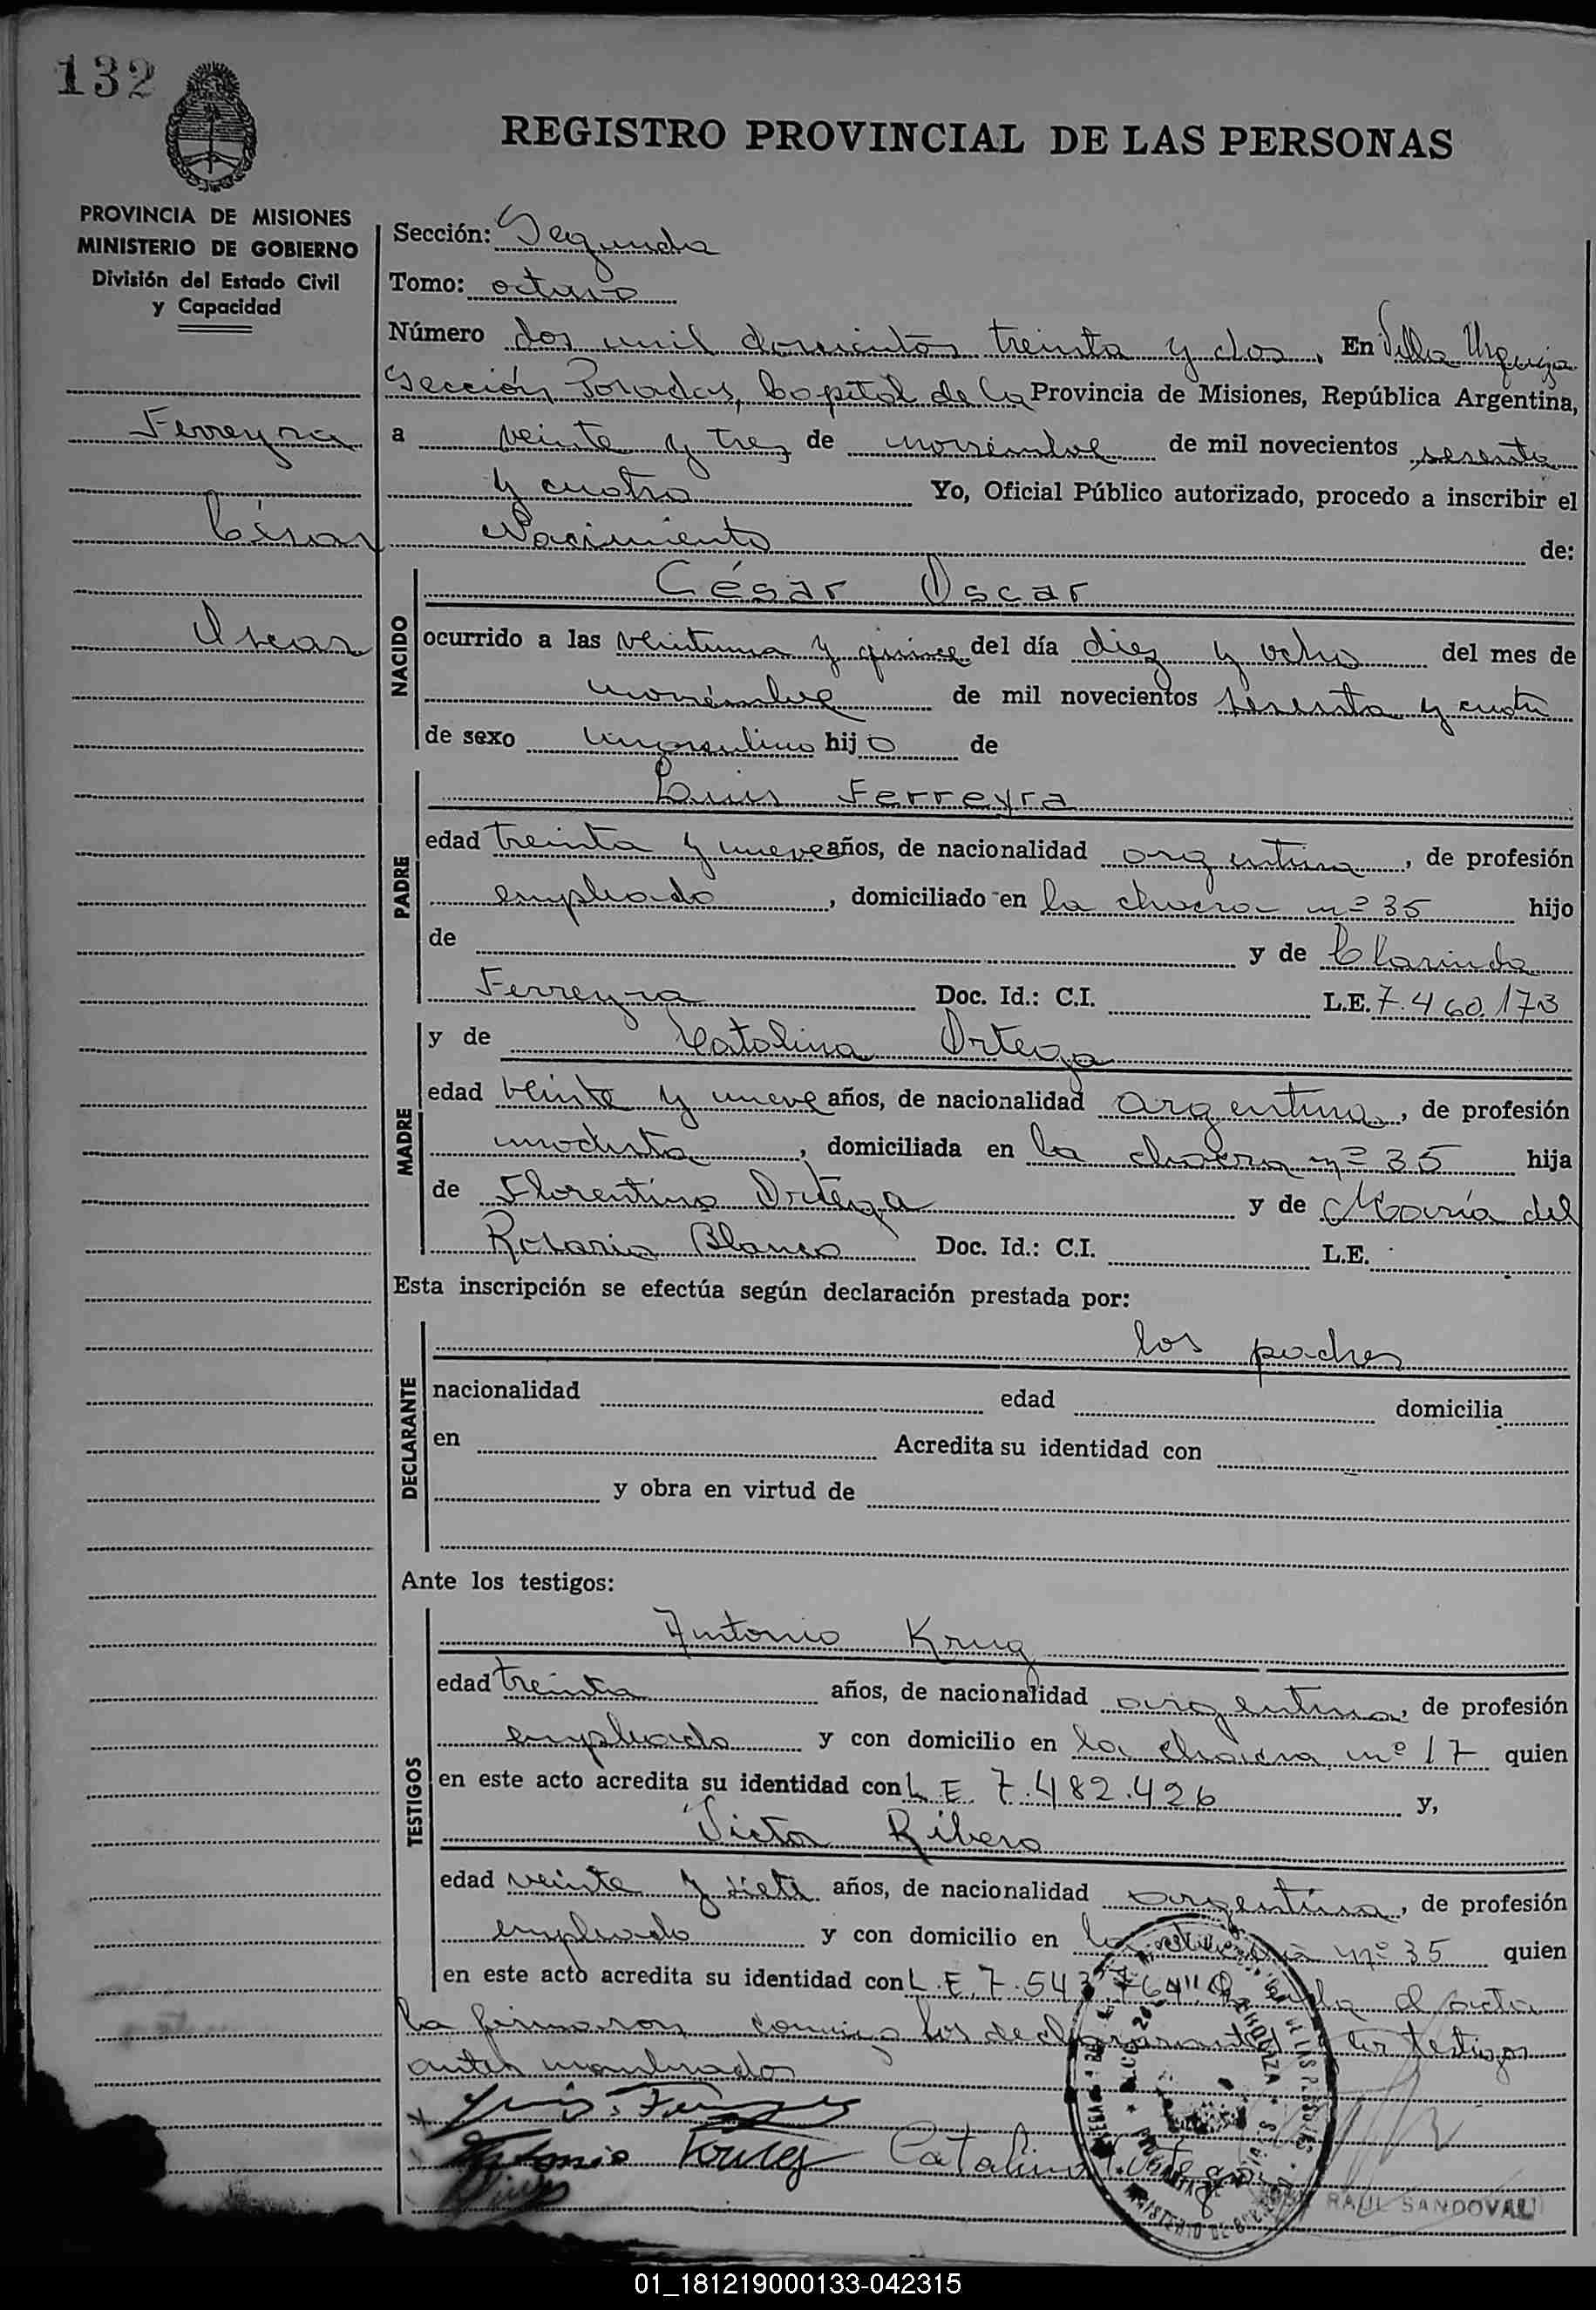 132
REGISTRO PROVINCIAL DE LAS PERSONAS
PROVINCIA DE MISIONES
MINISTERIO DE GOBIERNO
División del Estado Civil
y Capacidad
Ferreyra
César
Oscar
Sección: Segunda
Tomo: octavo
Número dos mil doscientos treinta y dos. En Villa Urquiza
Sección Posadas, Capital de la Provincia de Misiones, República Argentina,
a veinte y tres de noviembre de mil novecientos sesenta
y cuatro Yo, Oficial Público autorizado, procedo a inscribir el
Nacimiento de:
NACIDO
César Oscar
ocurrido a las veintiuna y quince del día diez y ocho del mes de
noviembre de mil novecientos sesenta y cuatro
de sexo masculino hijo de
PADRE
Luis Ferreyra
edad treinta y nueve años, de nacionalidad argentina, de profesión
empleado, domiciliado en la chacra nº 35 hijo
de y de Clarinda
Ferreyra Doc. Id.: C.I. L.E. 7.460.173
MADRE
y de Catalina Ortega
edad veinte y nueve años, de nacionalidad argentina, de profesión
modista, domiciliada en la chacra nº 35 hija
de Florentino Ortega y de María del
Rosario Blanco Doc. Id.: C.I. L.E.
Esta inscripción se efectúa según declaración prestada por:
DECLARANTE
los padres
nacionalidad edad domicilia
en Acredita su identidad con
y obra en virtud de
Ante los testigos:
TESTIGOS
Antonio Krug
edad treinta años, de nacionalidad argentina, de profesión
empleado y con domicilio en la chacra nº 17 quien
en este acto acredita su identidad con L.E. 7.482.426 y,
Victor Ribero
edad veinte y siete años, de nacionalidad argentina, de profesión
empleado y con domicilio en la chacra nº 35 quien
en este acto acredita su identidad con L.E. 7.543 el acta
la firmaron conmigo los declarantes testigos
antes nombrados
Luis Ferreyra
Antonio Krug Catalina Ortega
RAUL SANDOVAL
01_181219000133-042315